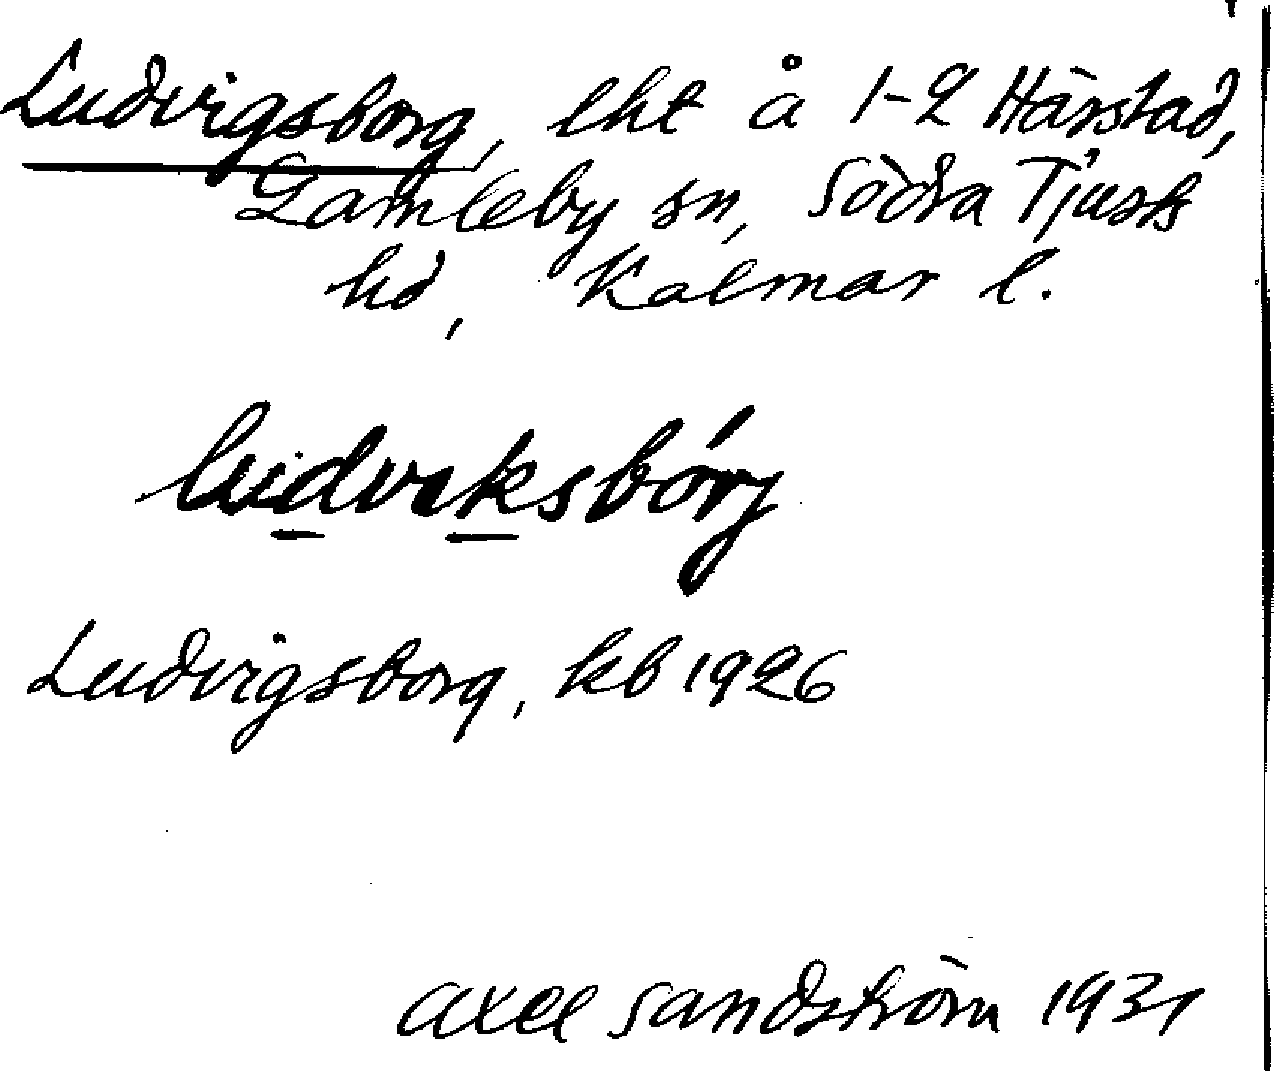 Ludvigsborg, lht å 1-2 Härstad,
Gamleby sn, Södra Tjusts
hd, Kalmar l.
ludvɩksbórj
Ludvigsborg, kb 1926
Axel Sandström 1931